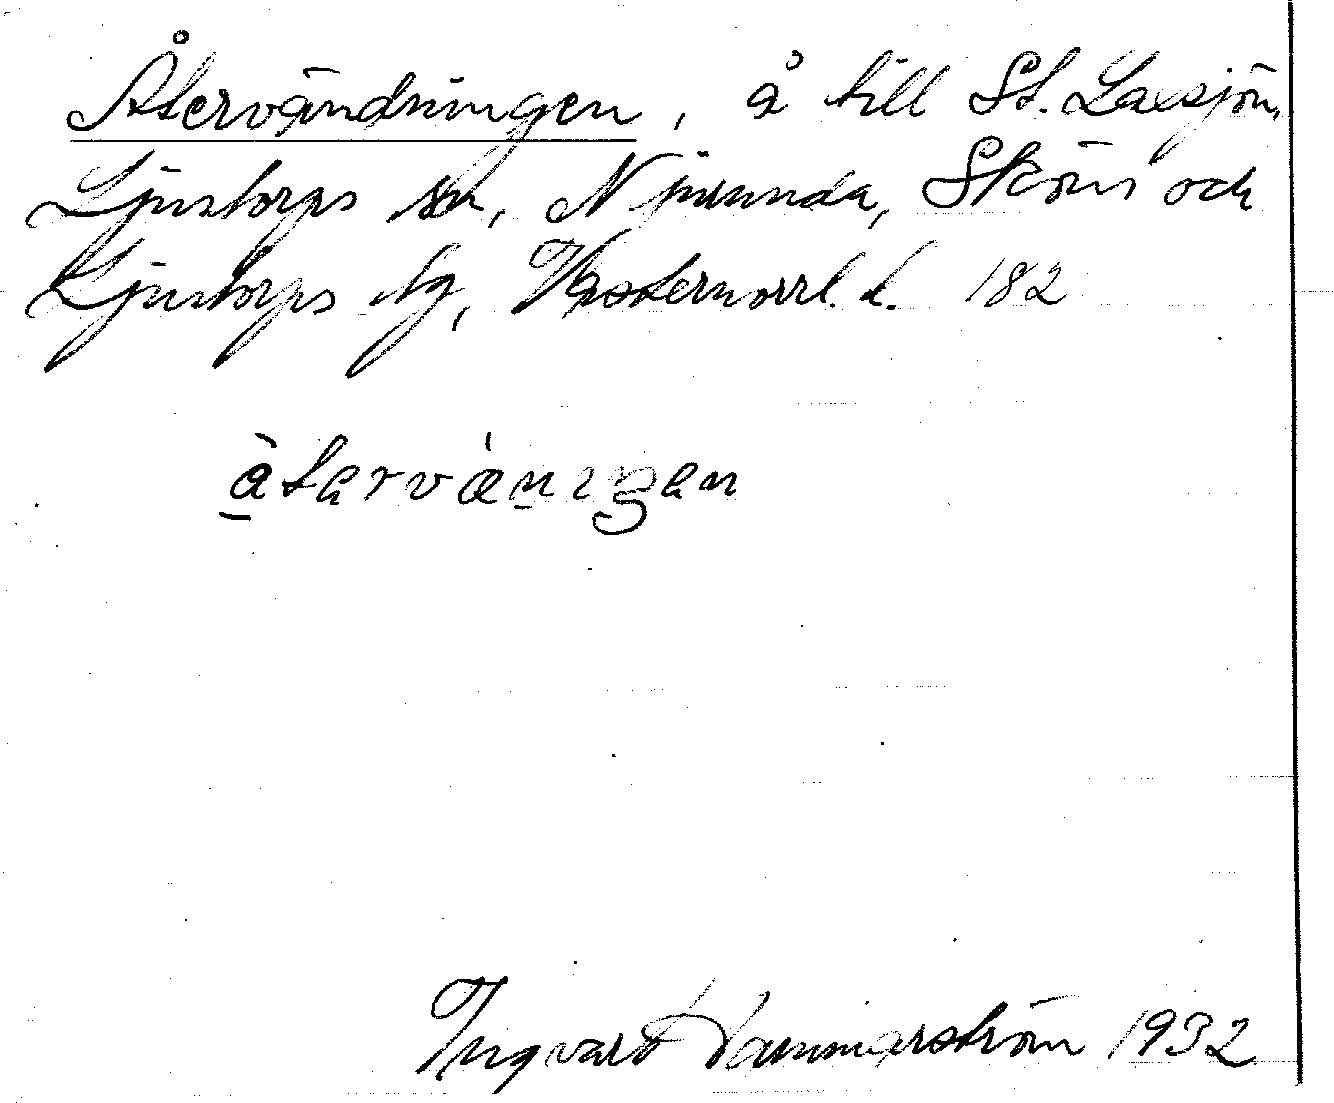 Återvändningen, å till St. Laxsjön,
Ljustorps sn, Njurunda, Sköns och
Ljustorps tg, Västernorrl. l. 182
å̱tàrvæ̀n̠ıŋən
Ingvart Hammarström 1932